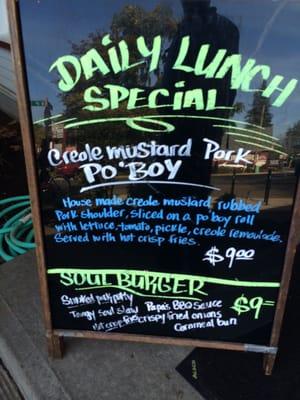 DAILY LUNCH
SPECIAL
Creole mustard Pork
PO'BOY
House made creole mustard rubbed
Pork shoulder, sliced on a po boy roll
with lettuce, tomato, pickle, creole remoulade.
Served with hot crisp fries.
$9.00
SOUL BURGER
Smoked pork patty Papa's BBQ Sauce
$9=
Tangy Soul Slaw crispy fried onions
hot crisp fries Caramel bun